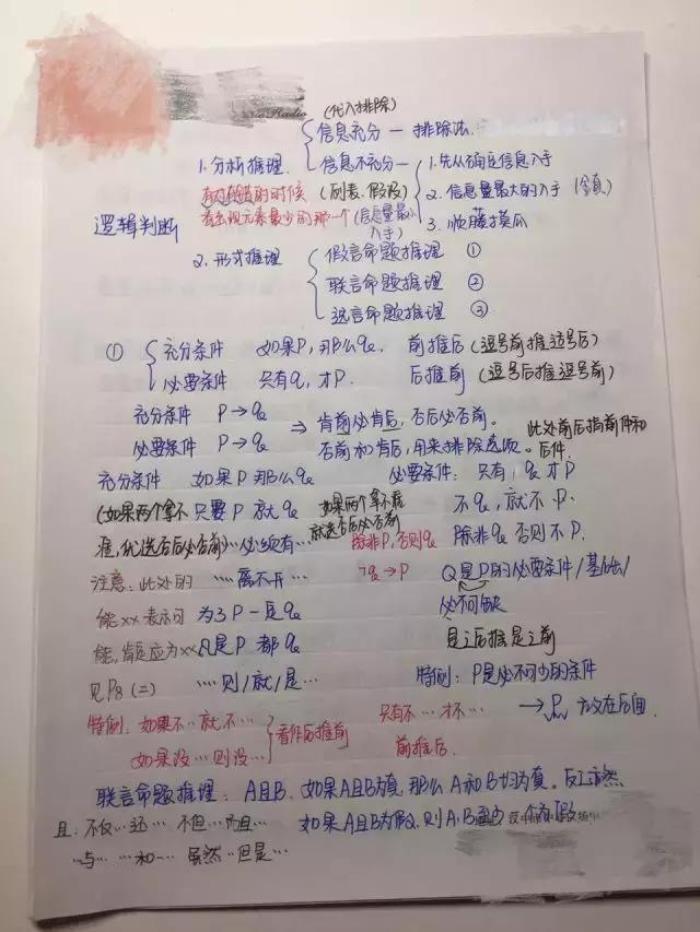 (代入排除)
信息充分 — 排除法.
1. 分析推理. 信息不充分 — 1. 先从确定信息入手
的时候 (列表、假设) 2. 信息量最大的入手
看出现元素最少的那一个 (信息量最大入手) 3. 顺藤摸瓜
逻辑判断
2. 形式推理 假言命题推理 ①
联言命题推理 ②
选言命题推理 ③
① 充分条件 如果P, 那么q. 前推后 (逗号前推逗号后)
必要条件 只有q, 才P. 后推前 (逗号后推逗号前)
充分条件 P→q ⇒ 肯前必肯后, 否后必否前。 此处前后指前件和后件.
必要条件 P→q 否前和肯后, 用来排除选项。
充分条件 如果P那么q 必要条件: 只有, q才P
(如果两个拿不 只要P就q 如果两个拿不准 不q, 就不P.
准, 优选否后必否前) …必须有… 就选否后必否前 除非P, 否则q 除非q否则不P.
注意: 此处的 …离不开… ¬q→P Q是P的必要条件/基础/
能xx表示可 为了P一定q 必不可缺
能, 肯定应为xx 凡是P都q 是之后推是之前
见P8 (二) …则/就/是… 特例: P是必不可少的条件
特例: 如果不…就不… 只有不…才不… → P 放在后面.
如果没…则没… 看作后推前 前推后.
联言命题推理: A且B. 如果A且B为真, 那么A和B均为真。反之亦然
且: 不仅…还… 不但…而且… 如果A且B为假, 则A、B
…与… …和… 虽然…但是…